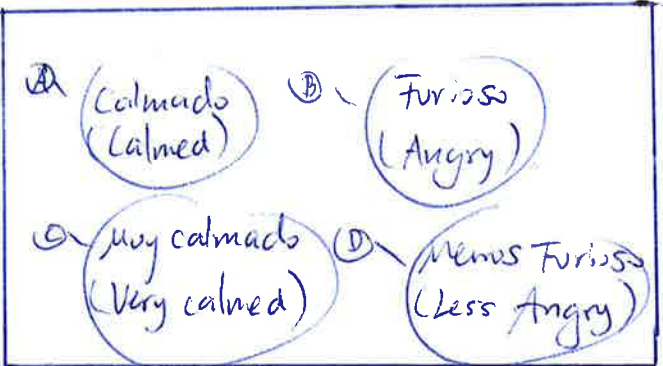 A Calmado
(Calmed)
B Furioso
(Angry)
C Muy calmado
(Very calmed)
D Menos Furioso
(Less Angry)